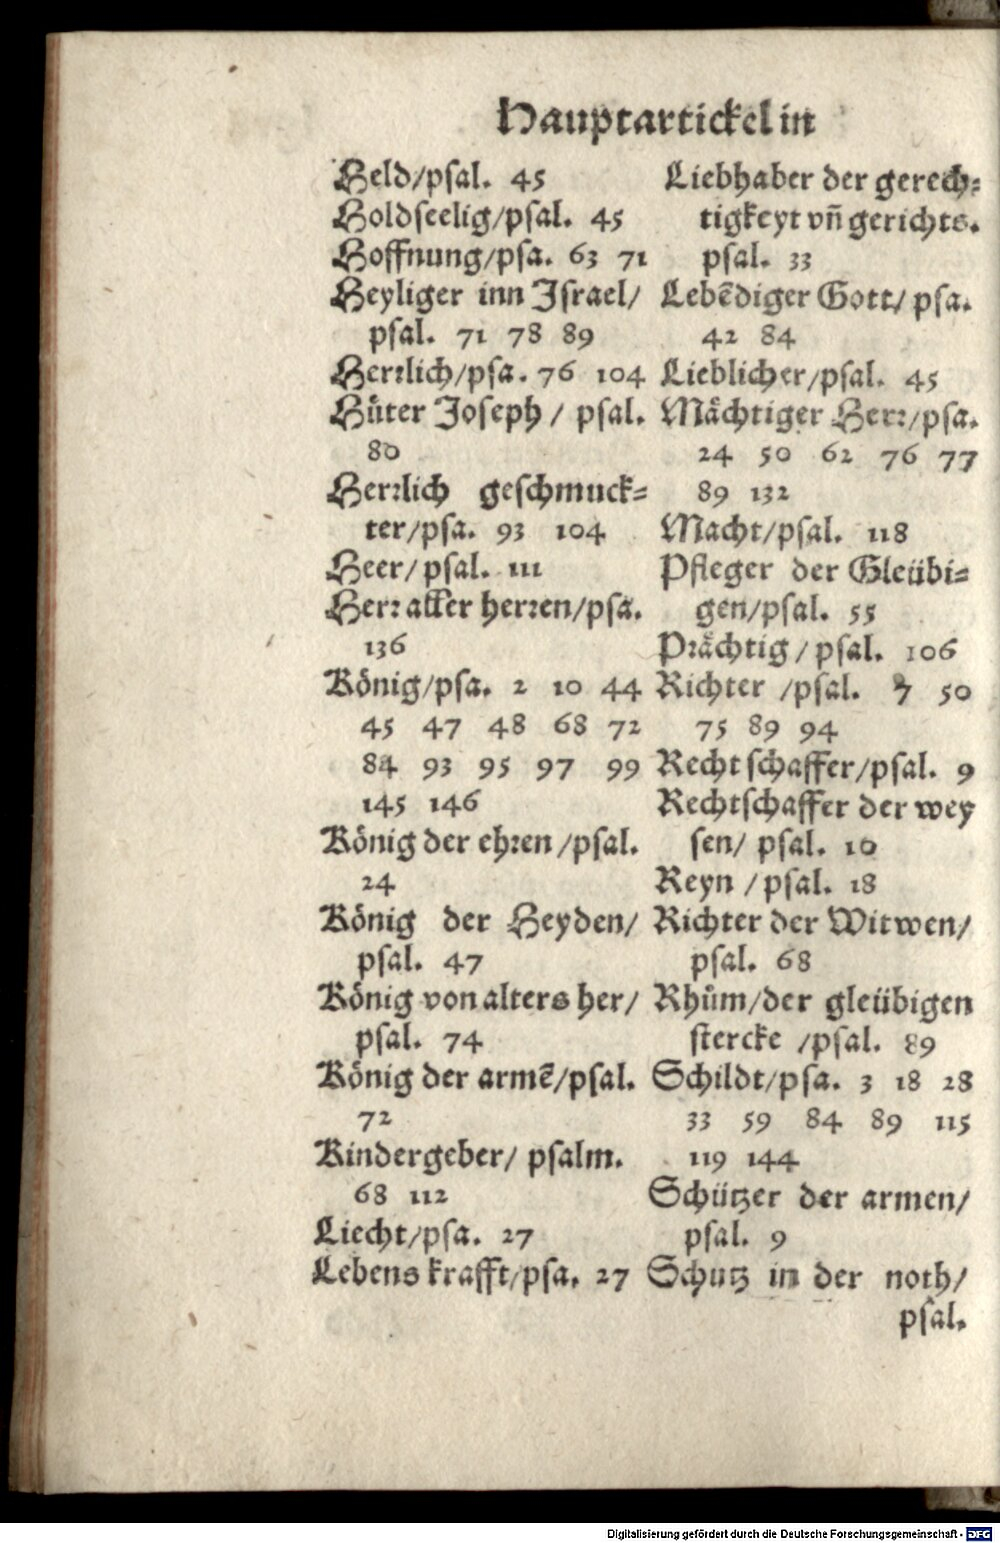 Hauptartickel in
Held/psal. 45
Holdseelig/psal. 45
Hoffnung/psa. 63 71
Heyliger inn Jsrael/
psal. 71 78 89
Herrlich/psa. 76 104
Hüter Joseph / psal.
80
Herrlich geschmuck=
ter/psa. 93 104
Heer/ psal. 111
Herr aller herren/psa.
136
König/psa. 2 10 44
45 47 48 68 72
84 93 95 97 99
145 146
König der ehren /psal.
24
König der Heyden/
psal. 47
König von alters her/
psal. 74
König der armē/psal.
72
Kindergeber/ psalm.
68 112
Liecht/psa. 27
Lebens krafft/psa. 27
Liebhaber der gerech=
tigkeyt vñ gerichts.
psal. 33
Lebēdiger Gott/ psa.
42 84
Lieblicher/psal. 45
Mächtiger Herr/psa.
24 50 62 76 77
89 132
Macht/psal. 118
Pfleger der Gleübi=
gen/psal. 55
Prächtig / psal. 106
Richter /psal. 7 50
75 89 94
Recht schaffer/psal. 9
Rechtschaffer der wey
sen/ psal. 10
Reyn / psal. 18
Richter der Witwen/
psal. 68
Rhům/der gleübigen
stercke /psal. 89
Schildt/psa. 3 18 28
33 59 84 89 115
119 144
Schützer der armen/
psal. 9
Schutz in der noth/
psal.
Digitalisierung gefördert durch die Deutsche Forschungsgemeinschaft - DFG